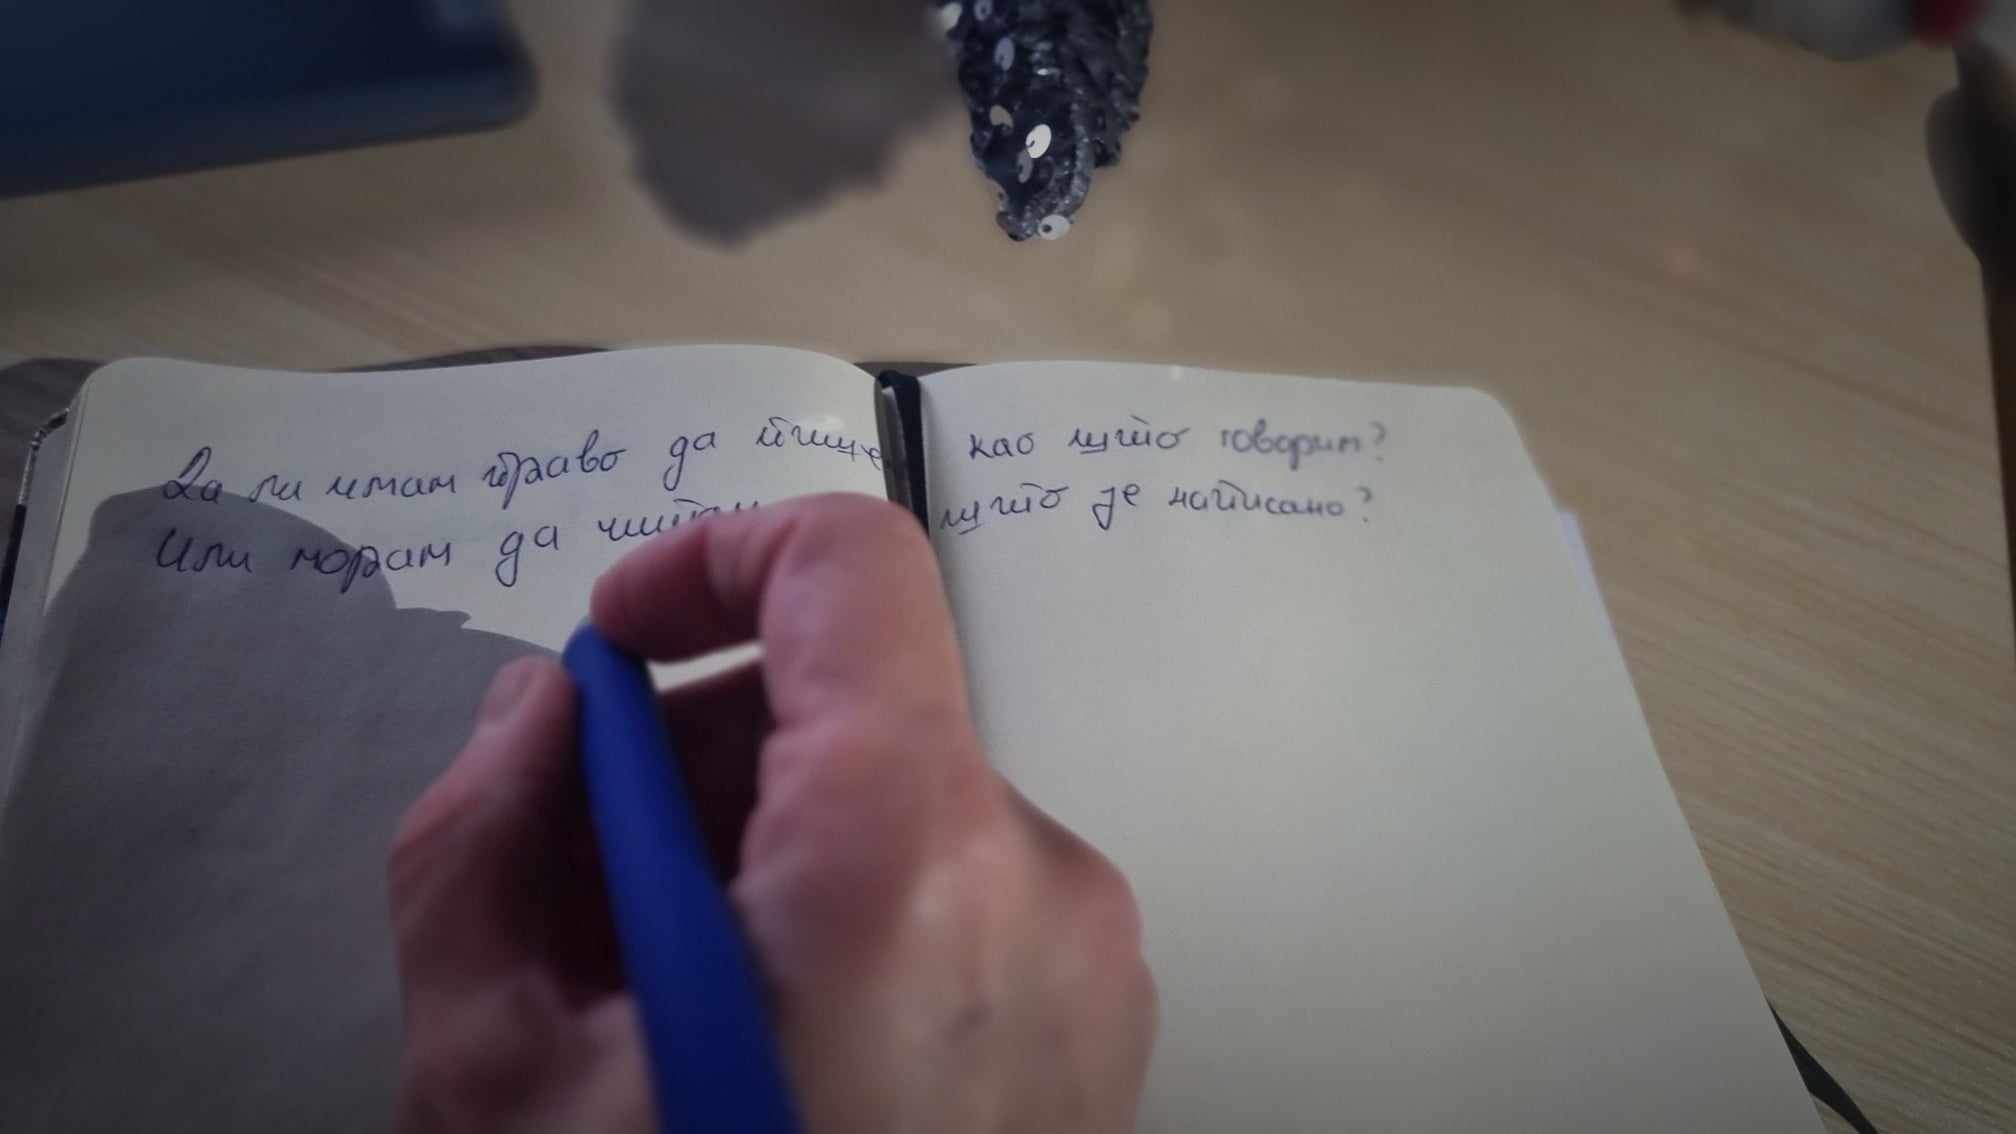 Да ли имам право да пишем као што говорим?
Или морам да читам што је написано?